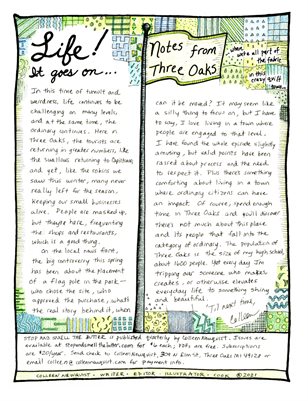 Life!
It goes on...
In this time of tumult and
weirdness, life continues to be
challenging on many levels,
and at the same time, the
ordinary continues. Here in
Three Oaks, the tourists are
returning in greater number, like
the swallows returning to Capistrano,
and yet, like the robins we
saw this winter, many never
really left for the season.
Keeping our small businesses
alive. People are masked up,
but they're here, frequenting
the shops and restaurants,
which is a good thing.
On the local news front,
the big controversy this spring
has been about the placement
of a flag pole in the park —
who chose the site, who
approved the purchase, what's
the real story behind it, when
Notes from
Three Oaks
when we're all part of
the fabric
in this
crazy quilt
town...
can it be moved? It may seem like
a silly thing to focus on, but I have
to say, I love living in a town where
people are engaged to that level.
I have found the whole episode slightly
amusing, but valid points have been
raised about process and the need
to respect it. Plus there's something
comforting about living in a town
where ordinary citizens can have
an impact. Of course, spend enough
time in Three Oaks and you'll discover
there's not much about this place
and its people that fall into the
category of ordinary. The population of
Three Oaks is the size of my high school,
about 1600 people. Yet every day I'm
tripping over someone who makes,
creates, or otherwise elevates
everyday life to something shiny
and beautiful.
'Til next time,
Colleen
STOP AND SMELL THE BUTTER is published quarterly by Colleen Newquist. Issues are
available at stopandsmellthebutter.com for $6 each; PDFs are free. Subscriptions
are $20/year. Send check to Colleen Newquist, 304 N Elm St, Three Oaks, MI 49128 or
email colleen@colleennewquist.com for payment info.
COLLEEN NEWQUIST • WRITER • EDITOR • ILLUSTRATOR • COOK © 2021